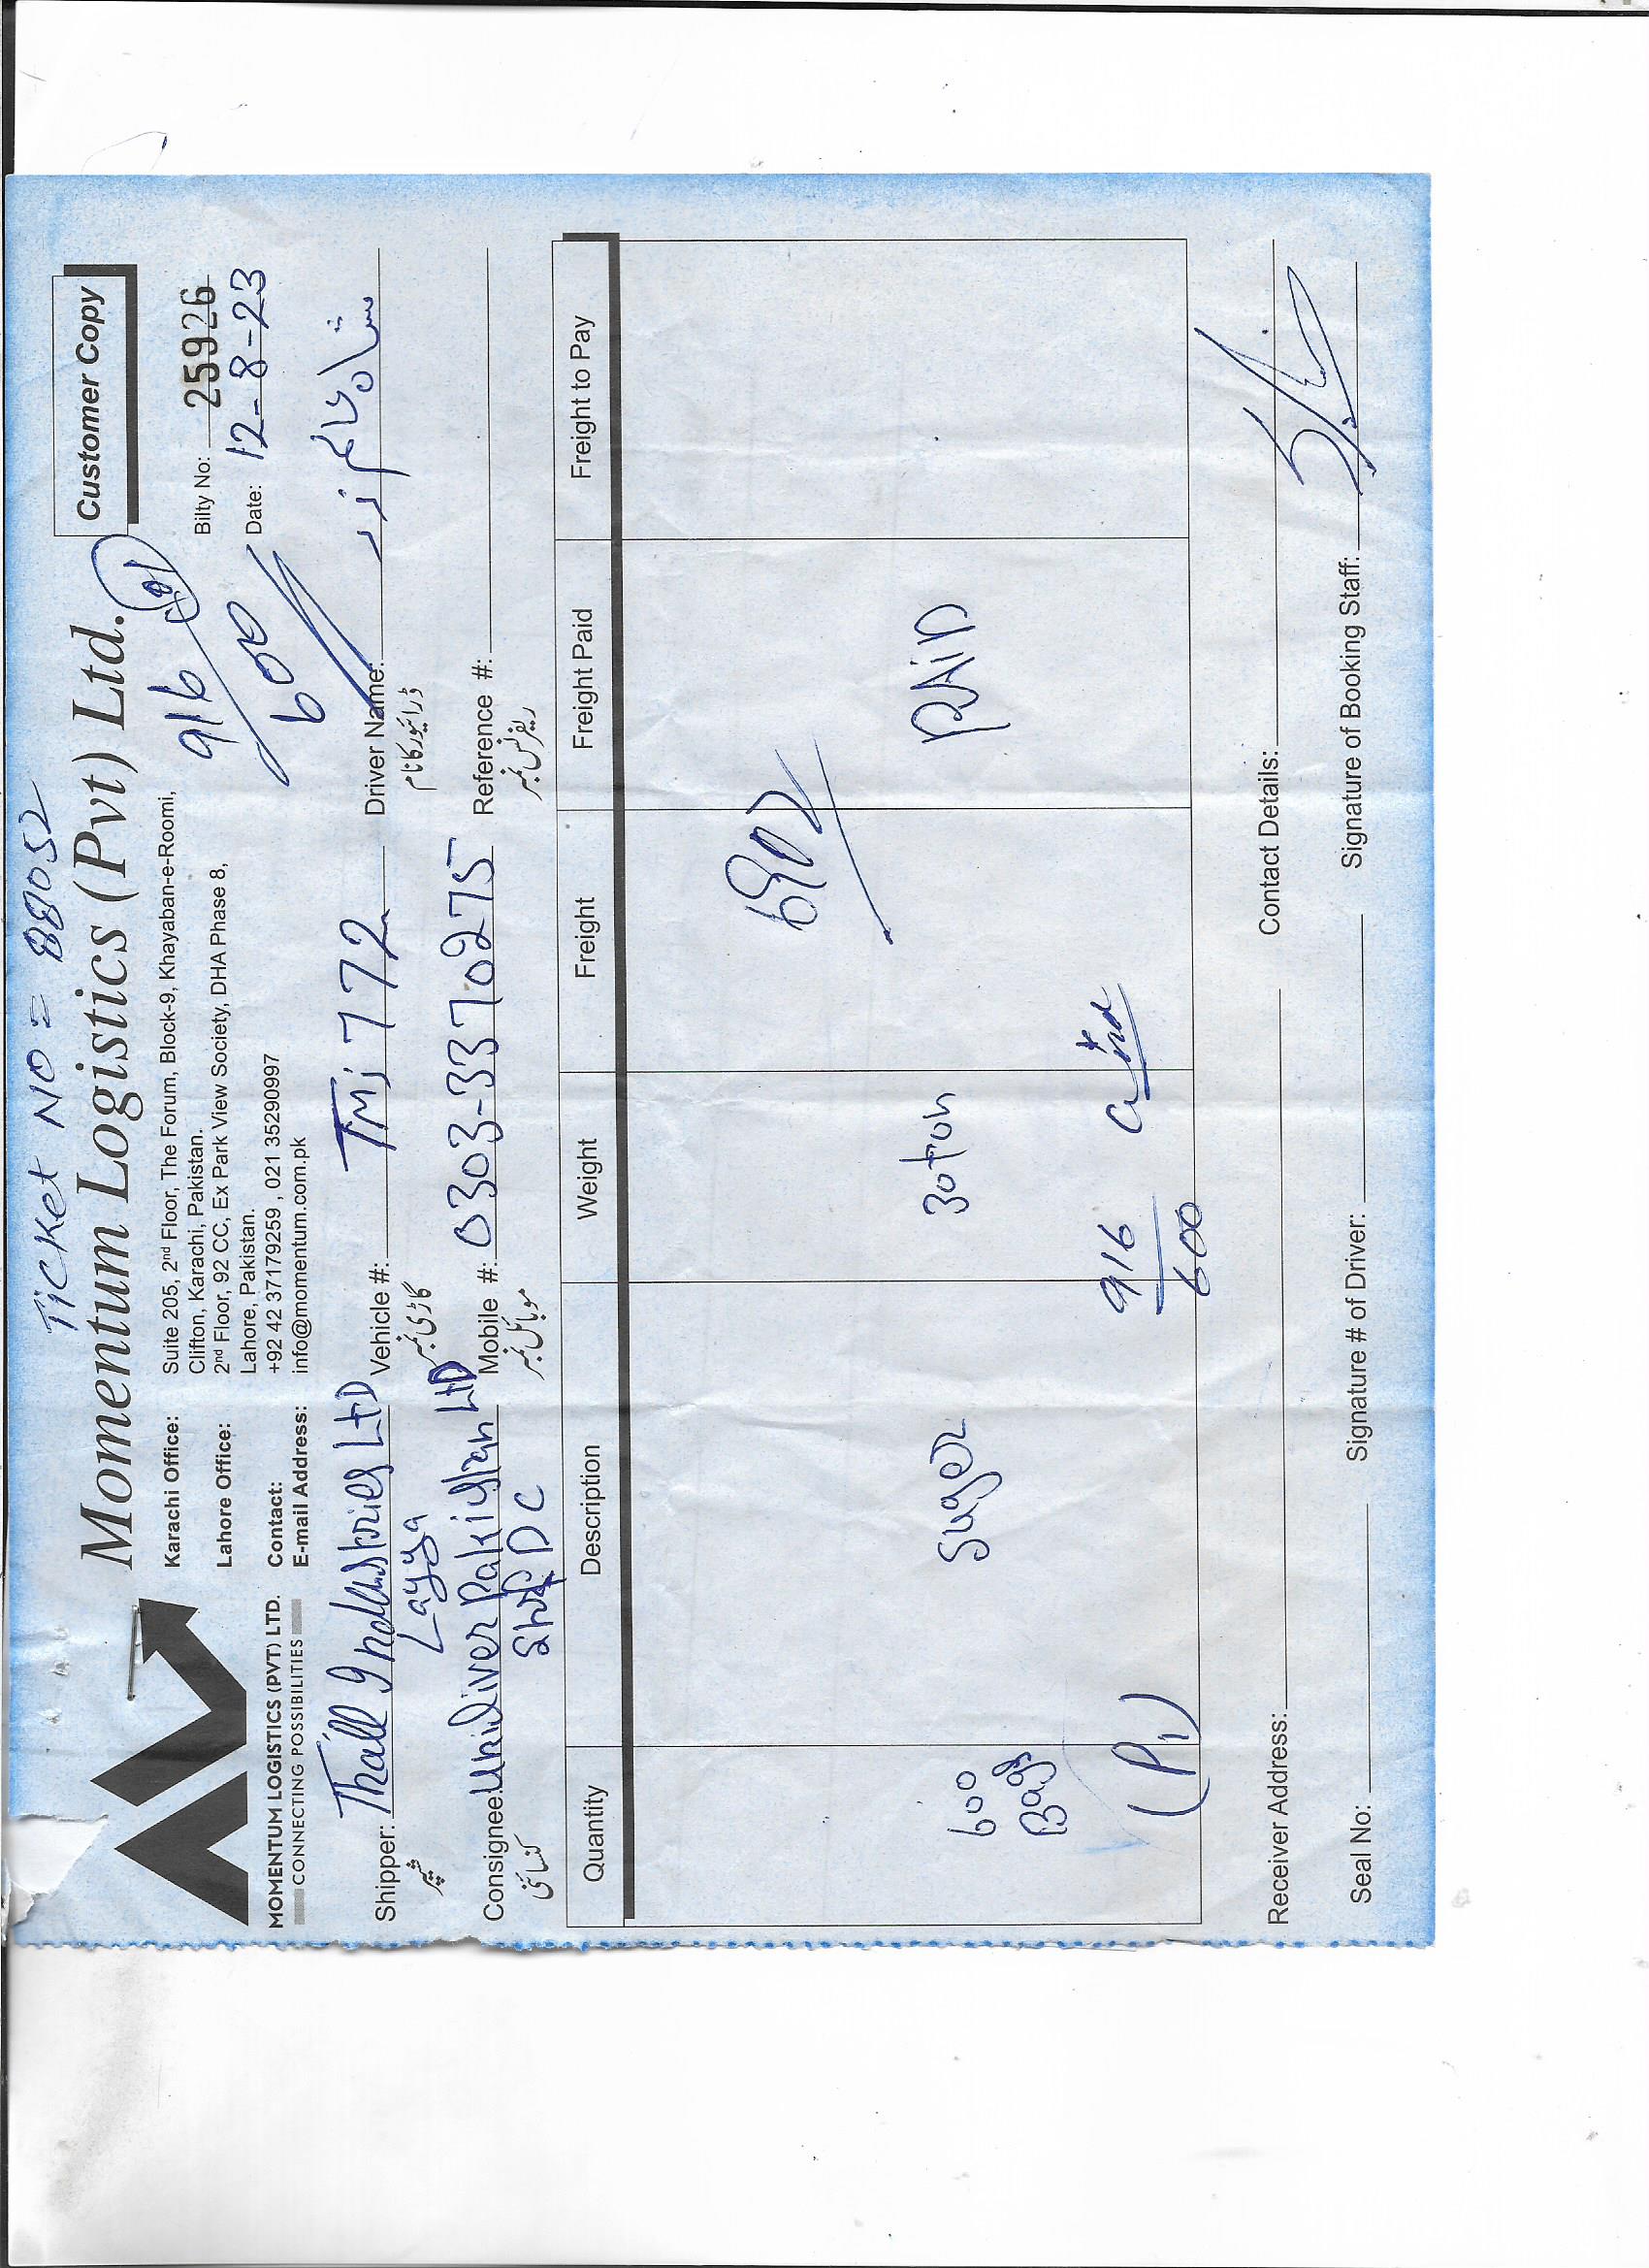 Ticket NO = 88052
Momentum Logistics (Pvt) Ltd.
Customer Copy
MOMENTUM LOGISTICS (PVT) LTD.
CONNECTING POSSIBILITIES
Karachi Office: Suite 205, 2nd Floor, The Forum, Block-9, Khayaban-e-Roomi,
Clifton, Karachi, Pakistan.
Lahore Office: 2nd Floor, 92 CC, Ex Park View Society, DHA Phase 8,
Lahore, Pakistan.
Contact: +92 42 37179259 , 021 35290997
E-mail Address: info@momentum.com.pk
916
600
Bilty No: 25926
Date: 12-8-23
Shipper: Thall Industries LTD
شپر
Layya
Vehicle #: TMJ 772
گاڑی نمبر
Driver Name:
ڈرائیور کا نام
Consignee: Uniliver Pakisstan LTD
کنسائنی
Mobile #: 0303-3370275
موبائل نمبر
Reference #:
ریفرنس نمبر
Quantity Description Weight Freight Freight Paid Freight to Pay
600 Bags
Suger
30 ton
PAID
(P1)
916
600
Receiver Address: Contact Details:
Seal No: Signature # of Driver: Signature of Booking Staff: